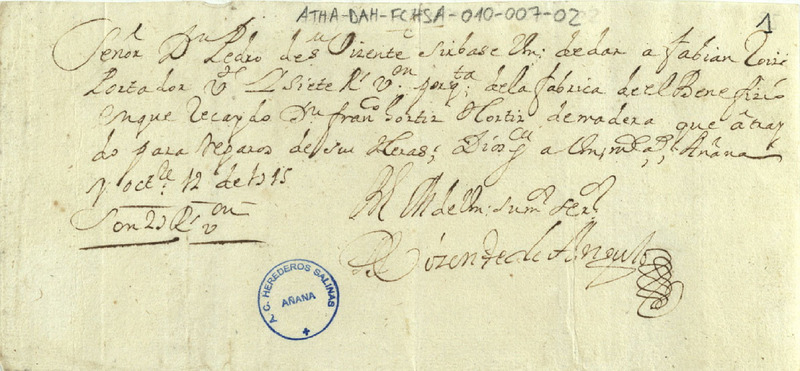 ATHA-DAH-FCHSA-010-007-02
1
Señor Dn Pedro de Sn Vizente sirbase Vm: de dar a fabian
Portador siete Rs von por qta de la fabrica de el Benefizio
en que Recaydo Dn franco hortiz de madera que a tray
do para Reparos de sus Heras; Dios ge a Vm; ms as; Añana
y octre 12 de 1715
Son 27 Rs von
BLM de Vm: su mor serr
Vizente de Angulo
A. C. HEREDEROS SALINAS
AÑANA